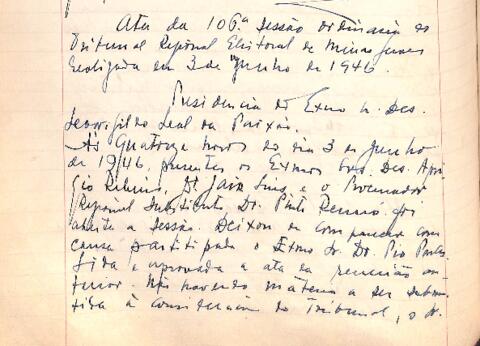 Ata da 106ª sessão ordinaria do
Tribunal Regional Eleitoral de Minas Geraes
realizada em 3 de Junho de 1946.
Presidencia do Exmo Sr. Des.
Leovigildo Leal da Paixão.
Ás quatorze horas do dia 3 de Junho
de 1946, presentes os Exmos Srs. Des. Apri
gio Ribeiro, Dr. Jair Lins e o Procurador
Regional Substituto Dr. Pinto Renó foi
aberta a sessão. Deixou de comparecer com
causa participada o Exmo Sr. Dr. Pio
Lida e aprovada a ata da reunião an-
terior. Não havendo matéria a ser subme-
tida à consideração do Tribunal, o Sr.